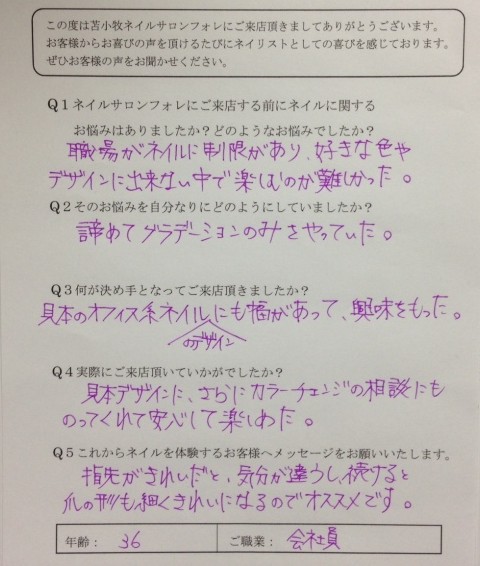 この度は苫小牧ネイルサロンフォレにご来店頂きましてありがとうございます。
お客様からお喜びの声を頂けるたびにネイリストとしての喜びを感じております。
ぜひお客様の声をお聞かせください。
Q1ネイルサロンフォレにご来店する前にネイルに関する
お悩みはありましたか？どのようなお悩みでしたか？
職場がネイルに制限があり、好きな色や
デザインに出来ない中で楽しむのが難しかった。
Q2そのお悩みを自分なりにどのようにしていましたか？
諦めてグラデーションのみをやっていた。
Q3何が決め手となってご来店頂きましたか？
見本のオフィス系ネイルにも幅があって、興味をもった。
のデザイン
Q4実際にご来店頂いていかがでしたか？
見本デザインに、さらにカラーチェンジの相談にも
のってくれて安心して楽しめた。
Q5これからネイルを体験するお客様へメッセージをお願いいたします。
指先がきれいだと、気分が違うし、続けると
爪の形も細くきれいになるのでオススメです。
年齢： 36 ご職業： 会社員